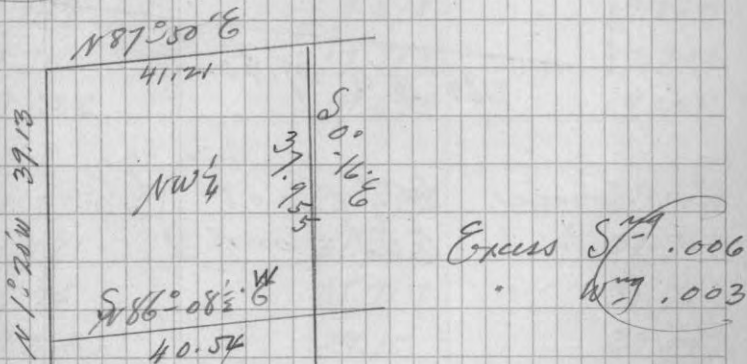 N 87° 50' E
41.21
N 1° 20' W 39.13
NW 1/4
37.955
S 0° 16' E
S 86° 08 1/2' W
40.54
Excess Sng .006
" Wng .003